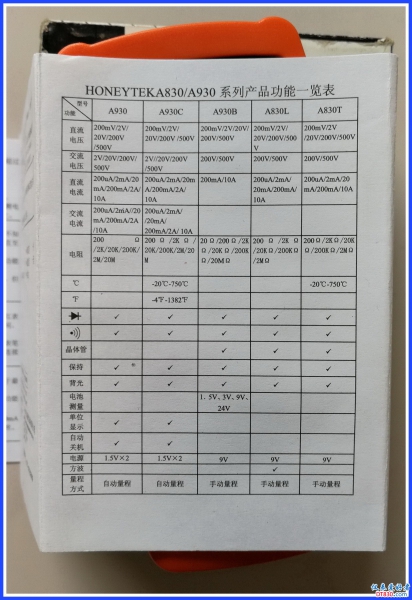 HONEYTEKA830/A930 系列产品功能一览表
型号 功能 A930 A930C A930B A830L A830T
直流电压 200mV/2V/20V/200V/500V 200mV/2V/20V/200V/500V 200mV/2V/20V/200V/500V 200mV/2V/20V/200V/500V 200mV/2V/20V/200V/500V
交流电压 2V/20V/200V/500V 2V//20V/200V/500V 200V/500V 200V/500V 200V/500V
直流电流 200uA/2mA/20mA/200mA/2A/10A 200uA/2mA/20mA/200mA/2A/10A 200mA/10A 200uA/2mA/20mA/200mA/10A 200uA/2mA/20mA/200mA/10A
交流电流 200uA/2mA/20mA/200mA/2A/10A 200uA/2mA/20mA/200mA/2A/10A
电阻 200Ω/2K/20K/200K/2M/20M 200Ω/2K/20K/200K/2M/20M 20Ω/200Ω/2KΩ/20KΩ/200KΩ/20MΩ 200Ω/2KΩ/20KΩ/200KΩ/2MΩ 200Ω/2KΩ/20KΩ/200KΩ/2MΩ
℃ -20℃-750℃ -20℃-750℃
℉ -4℉-1382℉
✓ ✓ ✓ ✓ ✓
✓ ✓ ✓ ✓ ✓
晶体管 ✓ ✓ ✓
保持 ✓ ✓ ✓ ✓ ✓
背光 ✓ ✓ ✓ ✓ ✓
电池测量 1.5V、3V、9V、24V
单位显示 ✓ ✓
自动关机 ✓ ✓
电源 1.5V×2 1.5V×2 9V 9V 9V
方波 ✓
量程方式 自动量程 自动量程 手动量程 手动量程 手动量程
仪表爱好者
DT830.com